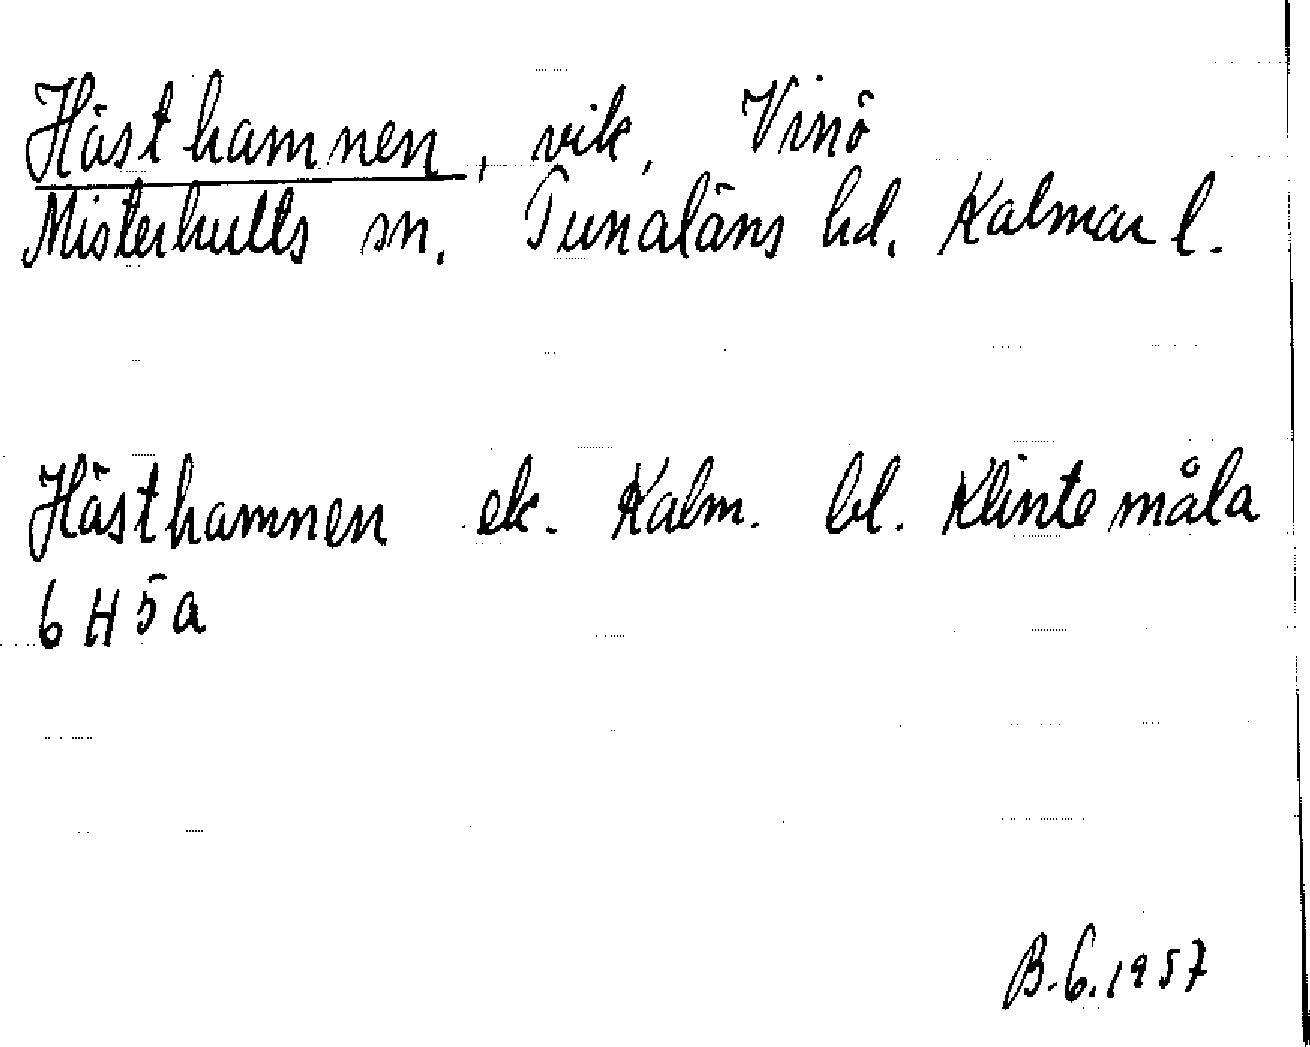 Hästhamnen, vik, Vinö
Misterhults sn. Tunaläns hd. Kalmar l.
Hästhamnen ek. Kalm. bl. Klintemåla
6H5a
B.G.1957